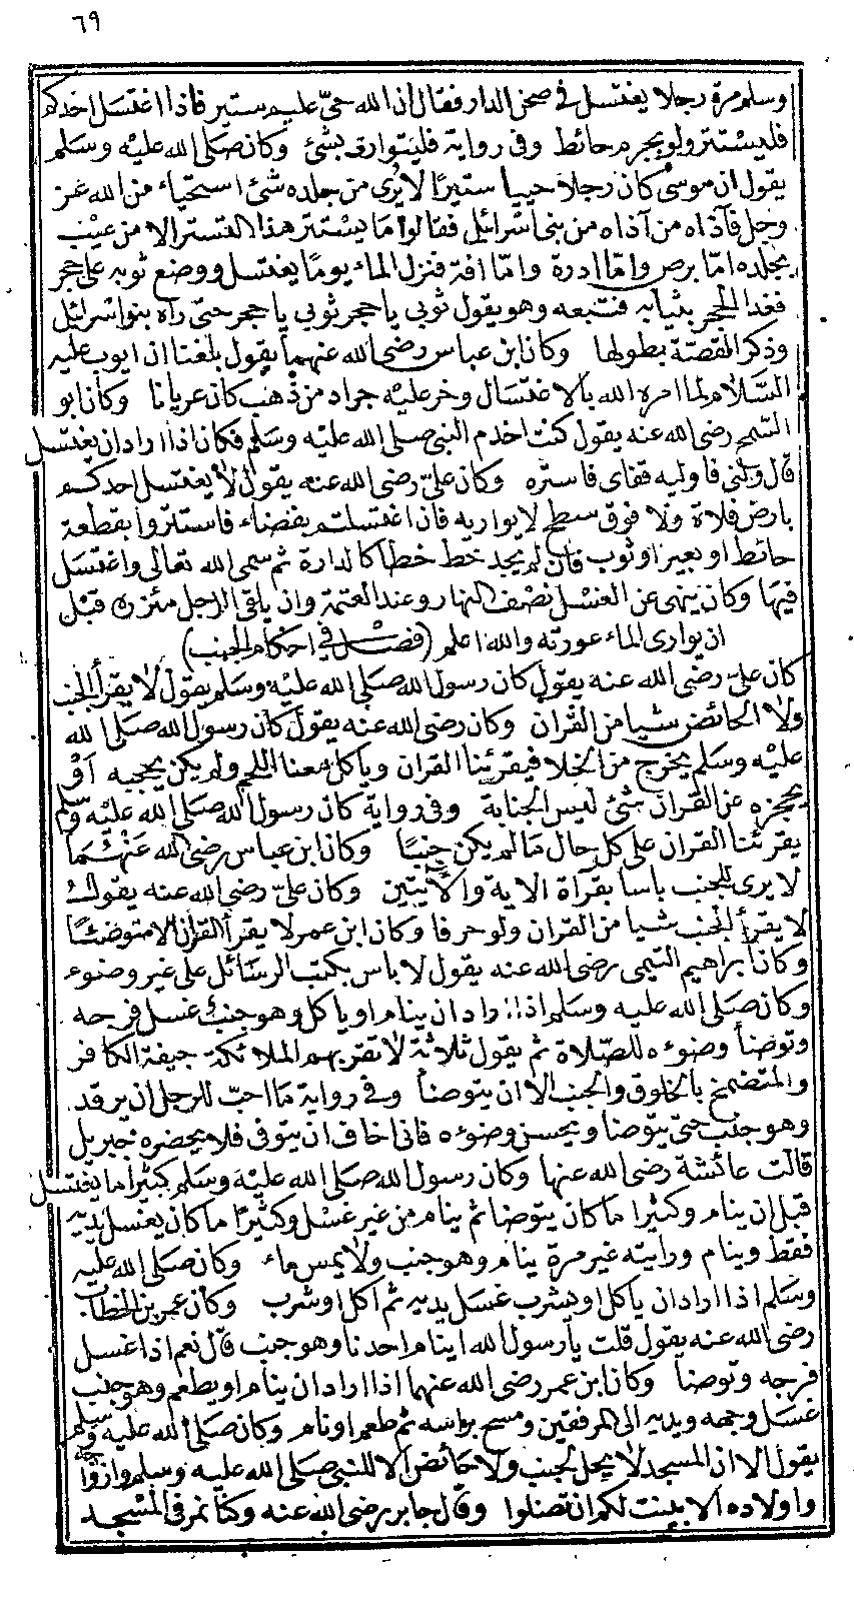 ٦٩
وسلم مرة رجلا يغتسل في صحن الدار فقال ان الله حيّ عليم ستير فاذا اغتسل احدكم
فليستتر ولو بجرم حائط وفي رواية فليتوارى بشئ وكان صلى الله عليه وسلم
يقول ان موسى كان رجلا حييا ستيرًا لا يرى من جلده شئ استحياء من الله عز
وجل فآذاه من آذاه من بني اسرائيل فقالوا ما يستتر هذا التستر الا من عيب
بجلده امّا برص وامّا ادرة وامّا افة فنزل الماء يومًا يغتسل ووضع ثوبه على حجر
فغدا الحجر بثيابه فتتبعه وهو يقول ثوبي يا حجر ثوبي يا حجر حتى رآه بنو اسرائيل
وذكر القصّة بطولها وكان ابن عباس رضي الله عنهما يقول بلغنا ان ايوب عليه
السّلام لما امره الله بالاغتسال وخر عليه جراد من ذهب كان عريانا وكان ابو
السّمح رضي الله عنه يقول كنت اخدم النبي صلى الله عليه وسلم فكان اذا اراد ان يغتسل
قال ولّني فاوليه قفاي فاستره وكان عليّ رضي الله عنه يقول لا يغتسل احدكم
بارض فلاة ولا فوق سطح لا يواريه فان اغتسلتم بفضاء فاستتروا بقطعة
حائط او بعير او ثوب فان لم يجد خط خطا كالدارة ثم سمى الله تعالى واغتسل
فيها وكان ينهى عن الغسل نصف النهار وعند العتمة وان يلقي الرجل مئزره قبل
ان يوارى الماء عورته والله اعلم (فصل في احكام الجنب)
كان عليّ رضي الله عنه يقول كان رسول الله صلى الله عليه وسلم يقول لا يقرأ الجنب
ولا الحائض شيا من القرآن وكان رضي الله عنه يقول كان رسول الله صلى الله
عليه وسلم يخرج من الخلا فيقرئنا القرآن وياكل معنا اللحم ولم يكن يحجبه او
يحجزه عن القرآن شئ ليس الجنابة وفي رواية كان رسول الله صلى الله عليه وسلم
يقرئنا القرآن على كل حال ما لم يكن جنبًا وكان ابن عباس رضي الله عنهما
لا يرى للجنب باسا بقرآة الاية والآيتين وكان عليّ رضي الله عنه يقول
لا يقرأ الجنب شيا من القرآن ولو حرفا وكان ابن عمر لا يقرأ القرآن الا متوضئًا
وكان ابراهيم التيمي رضي الله عنه يقول لا باس بكتب الرسائل على غير وضوء
وكان صلى الله عليه وسلم اذا اراد ان ينام او ياكل وهو جنب غسل فرجه
وتوضأ وضوءه للصلاة ثم يقول ثلاثة لا تقربهم الملائكة جيفة الكافر
والمتضمخ بالخلوق والجنب الا ان يتوضأ وفي رواية ما احبّ للرجل ان يرقد
وهو جنب حتى يتوضا ويحسن وضوءه فاني اخاف ان يتوفى فلا يحضره جبريل
قالت عائشة رضي الله عنها وكان رسول الله صلى الله عليه وسلم كثيرا ما يغتسل
قبل ان ينام وكثيرا ما كان يتوضا ثم ينام من غير غسل وكثيرًا ما كان يغسل يديه
فقط وينام ورايته غير مرة ينام وهو جنب ولا يمس ماء وكان صلى الله عليه
وسلم اذا اراد ان ياكل او يشرب غسل يديه ثم اكل او شرب وكان عمر بن الخطاب
رضي الله عنه يقول قلت يا رسول الله اينام احدنا وهو جنب قال نعم اذا غسل
فرجه وتوضأ وكان ابن عمر رضي الله عنهما اذا اراد ان ينام او يطعم وهو جنب
غسل وجهه ويديه الى المرفقين ومسح براسه ثم طعم او نام وكان صلى الله عليه وسلم
يقول الا ان المسجد لا يحل لجنب ولا حائض الا للنبي صلى الله عليه وسلم وازواجه
واولاده الا بينت لكم ان تضلوا وقال جابر رضي الله عنه وكنا نمر في المسجد